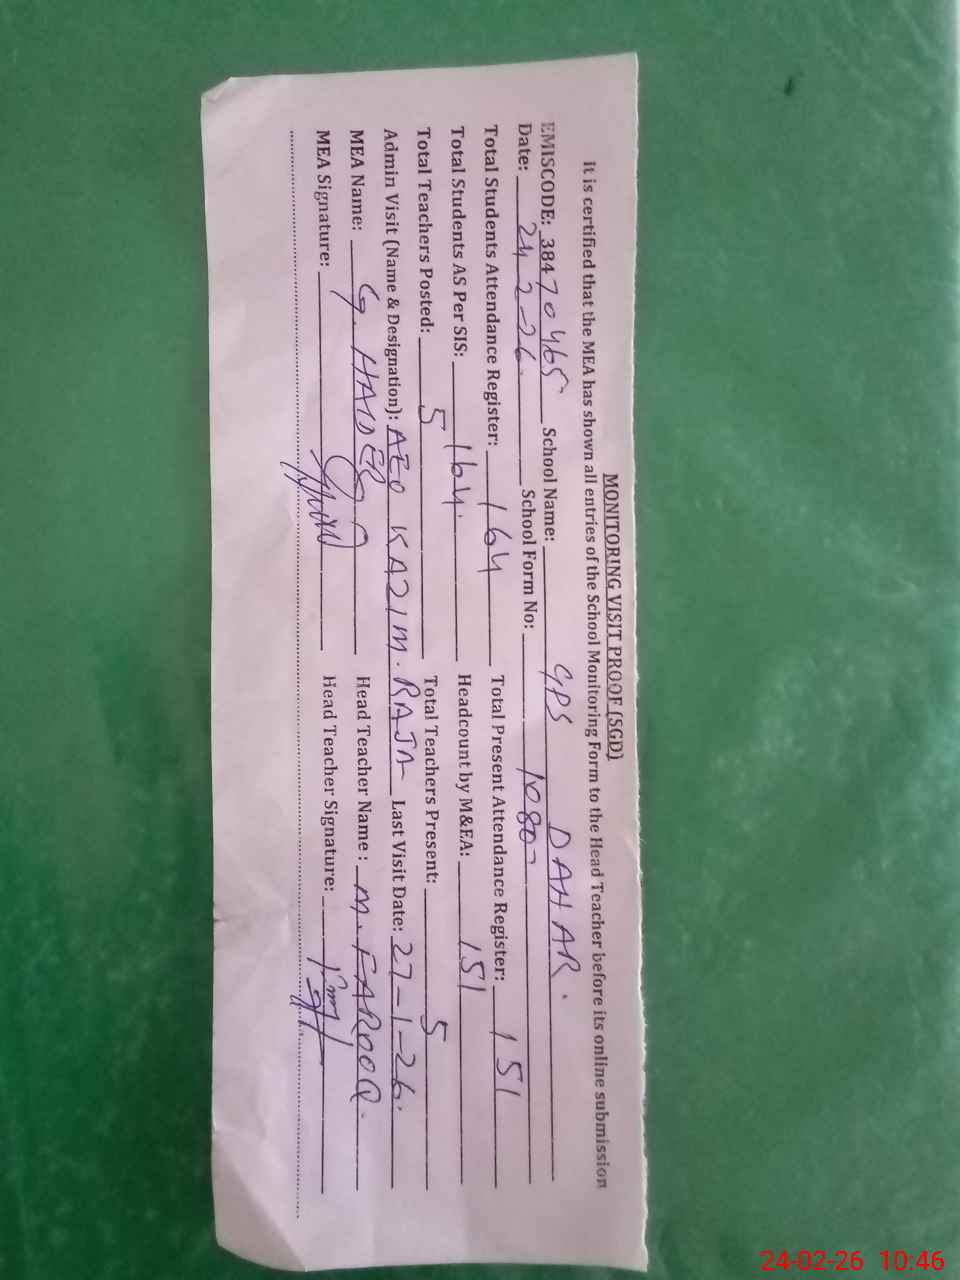 MONITORING VISIT PROOF (SGD)
It is certified that the MEA has shown all entries of the School Monitoring Form to the Head Teacher before its online submission
EMISCODE: 38470465 School Name: GPS DAHAR.
Date: 24-2-26. School Form No: 1080
Total Students Attendance Register: 164 Total Present Attendance Register: 151
Total Students AS Per SIS: 164. Headcount by M&EA: 151
Total Teachers Posted: 5 Total Teachers Present: 5
Admin Visit (Name & Designation): AEO KAZIM. RAJA Last Visit Date: 27-1-26.
MEA Name: G. HAIDER Head Teacher Name: M. FAROOQ.
MEA Signature: Head Teacher Signature:
24-02-26 10:46